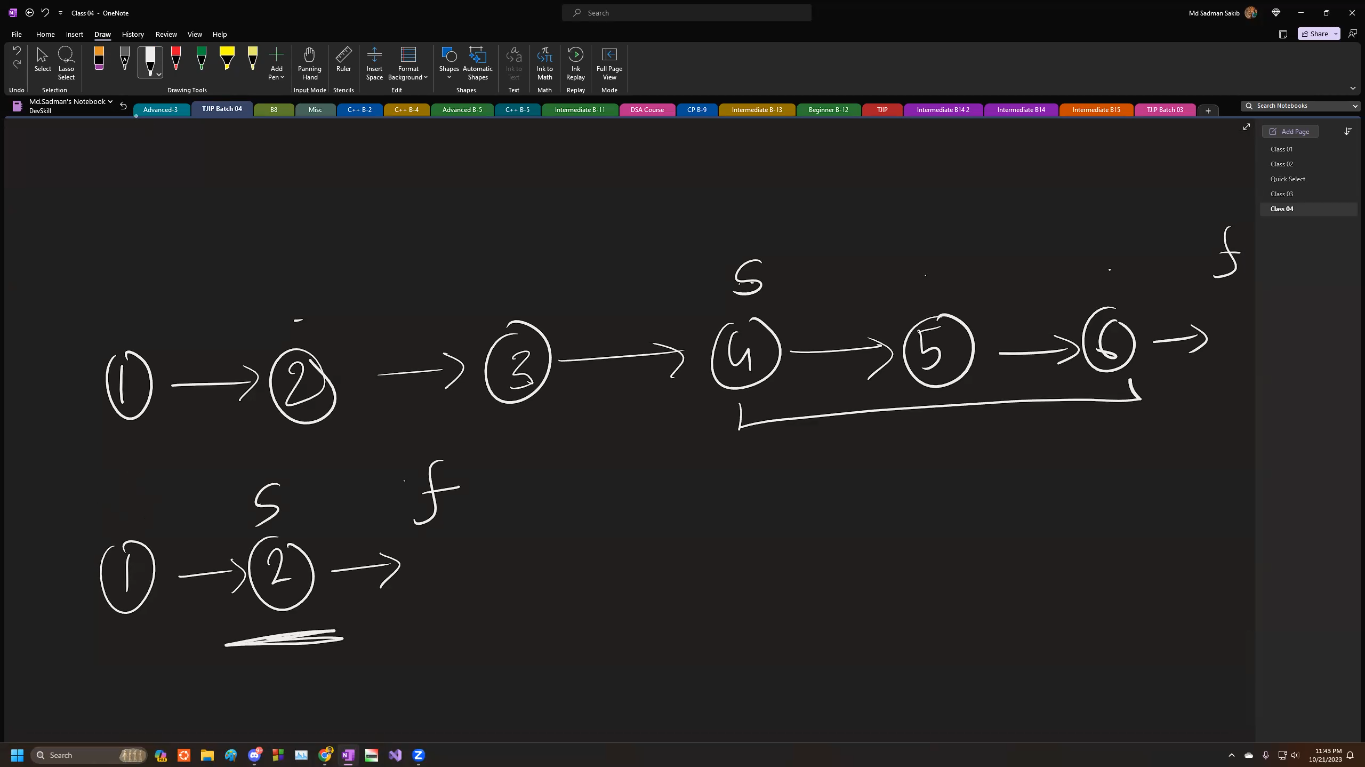 Class 04 - OneNote
Search
Md Sadman Sakib
File Home Insert Draw History Review View Help
Share
Undo
Select
Lasso Select
Selection
Add Pen
Drawing Tools
Panning Hand
Input Mode
Ruler
Stencils
Insert Space
Format Background
Edit
Shapes
Automatic Shapes
Shapes
Ink to Text
Text
Ink to Math
Math
Ink Replay
Replay
Full Page View
Modes
Md.Sadman's Notebook
DevSkill
Advanced-3 TJIP Batch 04 B8 Misc C++ B-2 C++ B-4 Advanced B-5 C++ B-5 Intermediate B-11 DSA Course CP B-9 Intermediate B-13 Beginner B-12 TJIP Intermediate B14.2 Intermediate B14 Intermediate B15 TJIP Batch 03 +
Search Notebooks
Add Page
Class 01
Class 02
Quick Select
Class 03
Class 04
s f
1 2 3 4 5 6
s f
1 2
Search
11:43 PM
10/21/2023